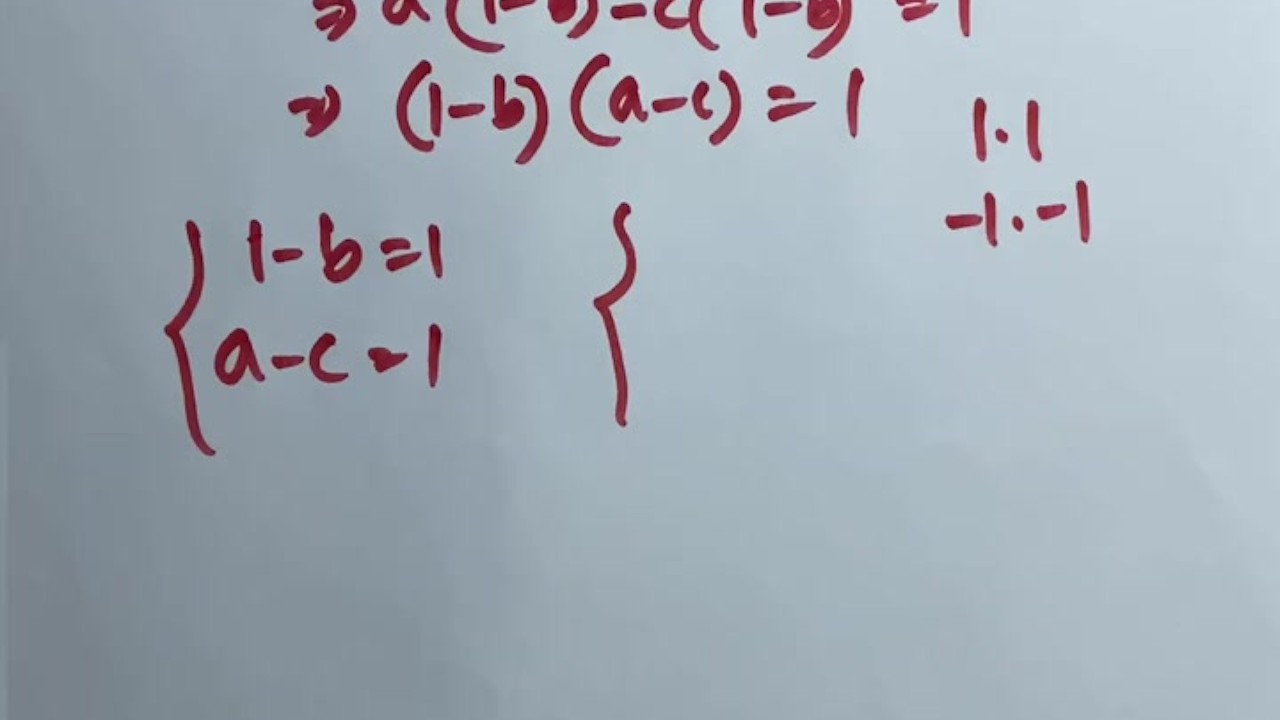 ⇒ a(1-b)-c(1-b) = 1
⇒ (1-b)(a-c) = 1
1·1
-1·-1
{ 1-b=1
a-c=1 {